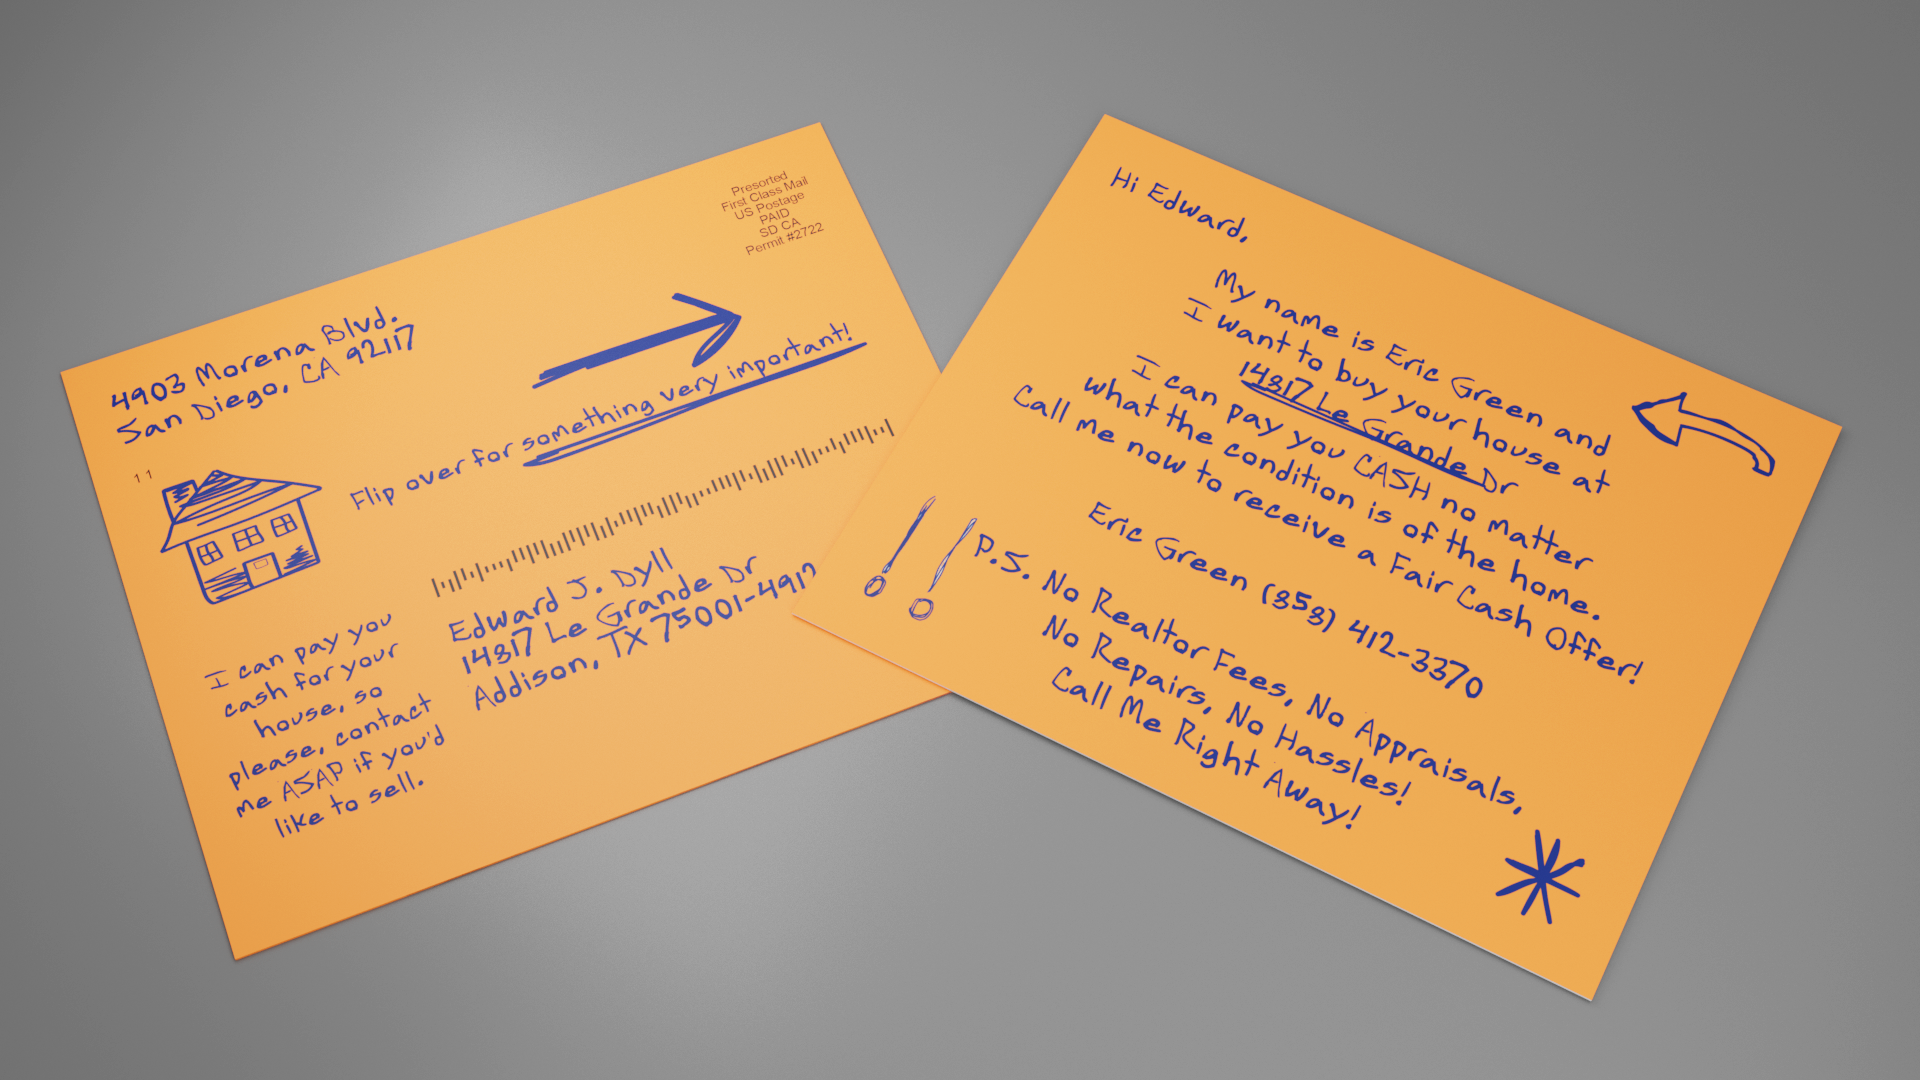 Presorted
First Class Mail
US Postage
PAID
SD CA
Permit #2722
4903 Morena Blvd.
San Diego, CA 92117
11
Flip over for something very important!
Edward J. Dyll
14817 Le Grande Dr
Addison, TX 75001-491
I can pay you
cash for your
house, so
please, contact
me ASAP if you'd
like to sell.
Hi Edward,
My name is Eric Green and
I want to buy your house at
14817 Le Grande Dr
I can pay you CASH no matter
what the condition is of the home.
Call me now to receive a Fair Cash Offer!
Eric Green (858) 412-3370
!! P.S. No Realtor Fees, No Appraisals,
No Repairs, No Hassles!
Call Me Right Away!